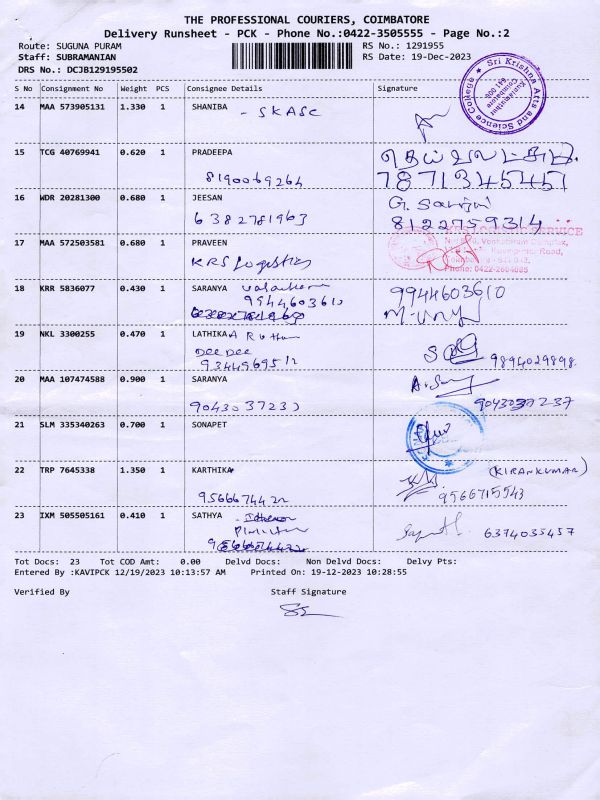 THE PROFESSIONAL COURIERS, COIMBATORE
Delivery Runsheet - PCK - Phone No.:0422-3505555 - Page No.:2
Route: SUGUNA PURAM RS No.: 1291955
Staff: SUBRAMANIAN RS Date: 19-Dec-2023
DRS No.: DCJB129195502
Sri Krishna Arts and Science College
Kuniamuthur
Coimbatore
641 008
S No Consignment No Weight PCS Consignee Details Signature
14 MAA 573905131 1.330 1 SHANIBA
- SKASC
15 TCG 40769941 0.620 1 PRADEEPA
8190069264 7871345451
16 WDR 20281300 0.680 1 JEESAN
6382781963 8122759314
17 MAA 572503581 0.680 1 PRAVEEN
KRS Logistics
Phone: 0422-2604885
18 KRR 5836077 0.430 1 SARANYA 9944603610
9944603610
19 NKL 3300255 0.470 1 LATHIKAA
Dee Dee
9344969512 9894029898
20 MAA 107474588 0.900 1 SARANYA
9043037237 9043037237
21 SLM 335340263 0.700 1 SONAPET
22 TRP 7645338 1.350 1 KARTHIKA (KIRANKUMAR)
9566674422 9566715543
23 IXM 505505161 0.410 1 SATHYA
6374035457
Tot Docs: 23 Tot COD Amt: 0.00 Delvd Docs: Non Delvd Docs: Delvy Pts:
Entered By :KAVIPCK 12/19/2023 10:13:57 AM Printed On: 19-12-2023 10:28:55
Verified By Staff Signature